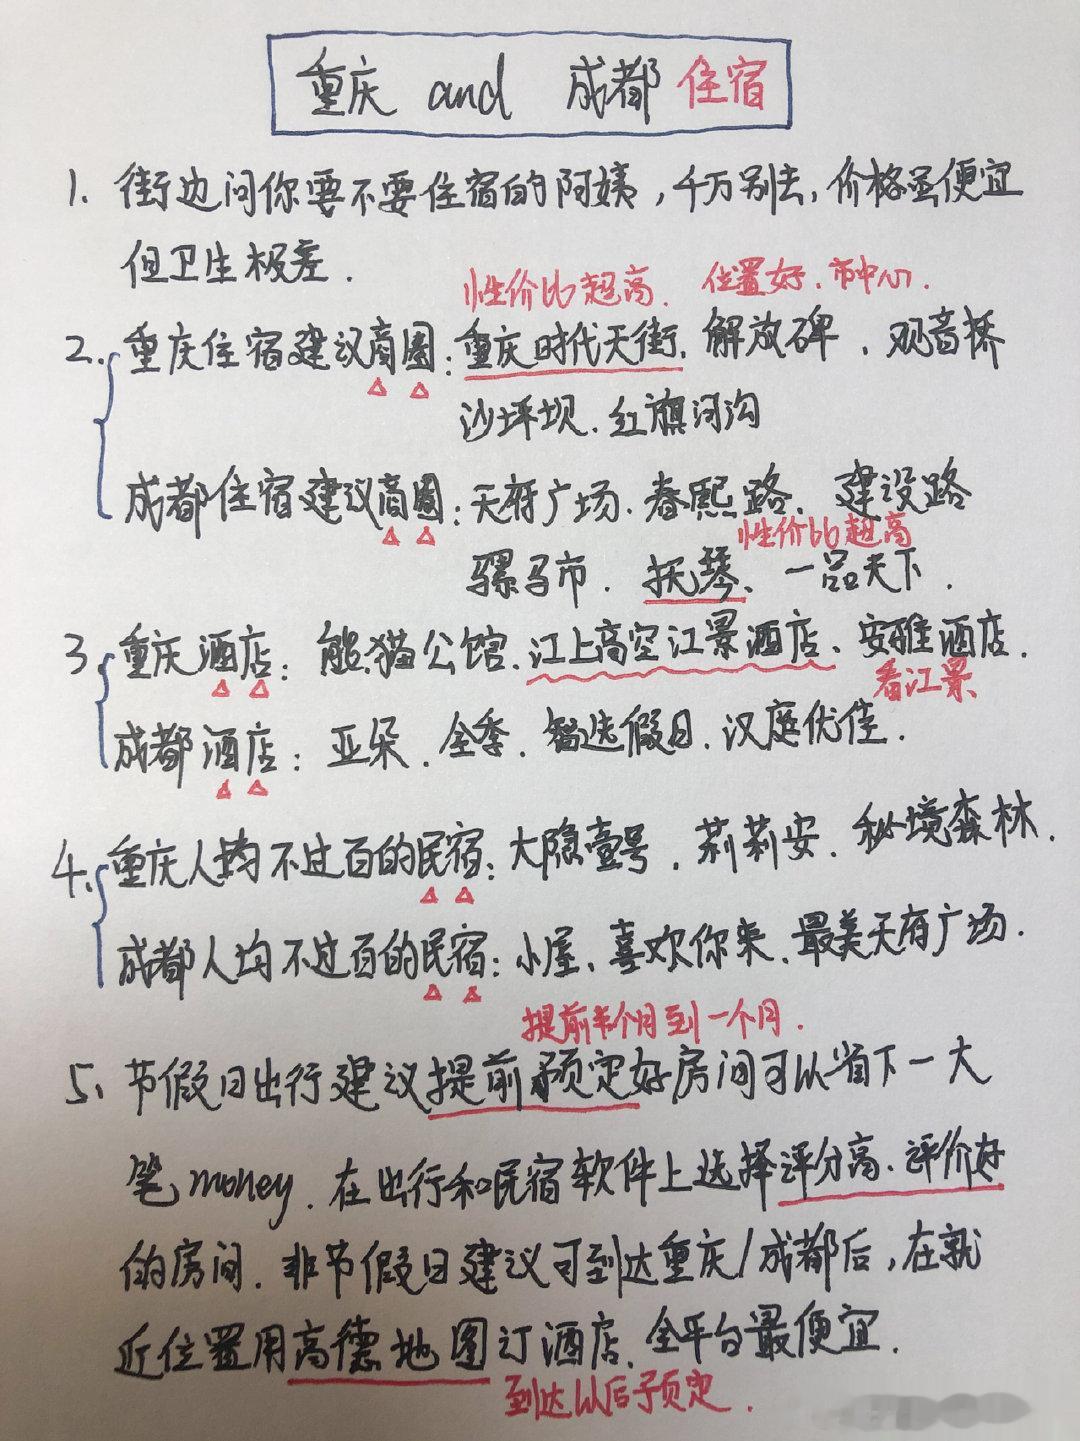 重庆 and 成都 住宿
1、街边问你要不要住宿的阿姨，千万别去，价格虽便宜
但卫生极差.
性价比超高. 位置好、市中心.
2、重庆住宿建议商圈：重庆时代天街、解放碑、观音桥
沙坪坝、红旗河沟
成都住宿建议商圈：天府广场、春熙路、建设路
性价比超高
骡马市、抚琴、一品天下.
3、重庆酒店：熊猫公馆、江上高空江景酒店、安雅酒店.
看江景
成都酒店：亚朵、全季、智选假日、汉庭优佳.
4、重庆人均不过百的民宿：大隐壹号、莉莉安、秘境森林.
成都人均不过百的民宿：小屋、喜欢你来、最美天府广场.
提前半个月到一个月.
5、节假日出行建议提前预定好房间可以省下一大
笔money、在出行和民宿软件上选择评分高、评价好
的房间. 非节假日建议可到达重庆/成都后，在就
近位置用高德地图订酒店、全平台最便宜.
到达以后予预定.